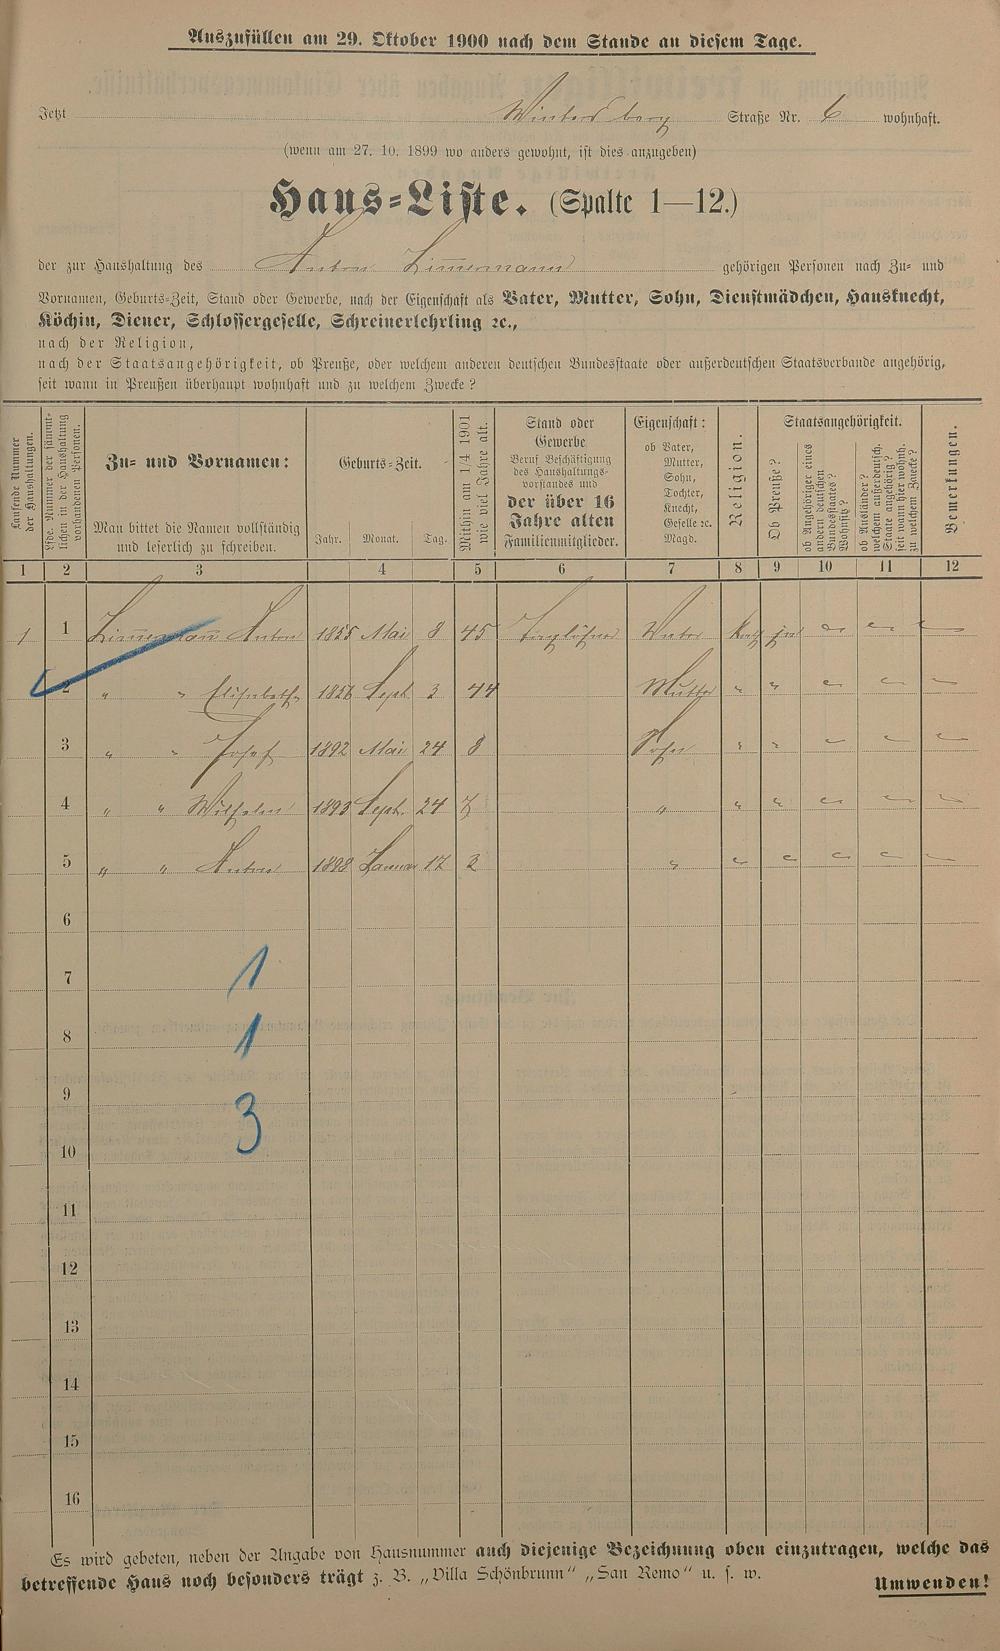 Auszufüllen am 29. Oktober 1900 nach dem Stande an diesem Tage.
Jetzt Wintersberg Straße Nr. 6 wohnhaft.
(wenn am 27. 10. 1899 wo anders gewohnt, ist dies anzugeben)
Haus=Liste. (Spalte 1—12.)
der zur Haushaltung des Anton Zim̅ermann gehörigen Personen nach Zu= und
Vornamen, Geburts=Zeit, Stand oder Gewerbe, nach der Eigenschaft als Vater, Mutter, Sohn, Dienstmädchen, Hausknecht,
Köchin, Diener, Schlossergeselle, Schreinerlehrling ꝛc.,
nach der Religion,
nach der Staatsangehörigkeit, ob Preuße, oder welchem anderen deutschen Bundesstaate oder außerdeutschen Staatsverbande angehörig,
seit wann in Preußen überhaupt wohnhaft und zu welchem Zwecke?
Laufende Nummer
der Haushaltungen.
Lfde. Nummer der sämmt-
lichen in der Haushaltung
vorhandenen Personen.
Zu= und Vornamen:
Man bittet die Namen vollständig
und leserlich zu schreiben.
Geburts=Zeit.
Jahr. Monat. Tag.
Mithin am 1/4 1901
wie viel Jahre alt.
Stand oder
Gewerbe
Beruf Beschäftigung
des Haushaltungs-
vorstandes und
der über 16
Jahre alten
Familienmitglieder.
Eigenschaft:
ob Vater,
Mutter,
Sohn,
Tochter,
Knecht,
Geselle ꝛc.
Magd.
Religion.
Staatsangehörigkeit.
Ob Preuße?
ob Angehöriger eines
andern deutschen
Bundesstaates?
Wohnsitz?
ob Ausländer?
welchem außerdeutsch.
Staate angehörig?
seit wann hier wohnh.
zu welchem Zwecke?
Bemerkungen.
1 2 3 4 5 6 7 8 9 10 11 12
1 1 Zim̅ermann Anton 1855 Mai 8 45 Vater Kath ja " " "
2 " " Elisabeth 1856 Sept 3 44 Mutter " " " " "
3 " " Josef 1892 Mai 24 8 Sohn " " " " "
4 " " Wilhelm 1893 Sept. 24 7 " " " " " "
5 " " Anton 1898 Januar 17 3 " " " " " "
6
7 1
8 1
9
10 3
11
12
13
14
15
16
Es wird gebeten, neben der Angabe von Hausnummer auch diejenige Bezeichnung oben einzutragen, welche das
betreffende Haus noch besonders trägt z. B. „Villa Schönbrunn“ „San Remo“ u. s. w.
Umwenden!